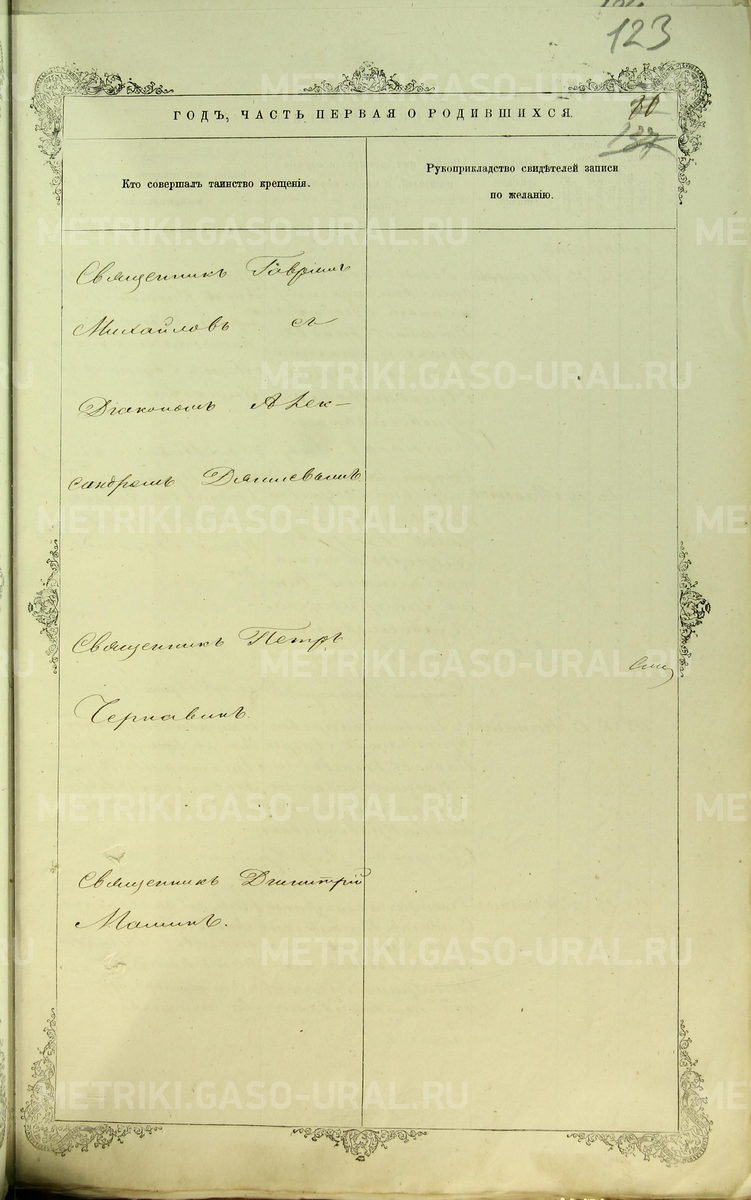 123
10
137
ГОДЪ, ЧАСТЬ ПЕРВАЯ О РОДИВШИХСЯ.
Кто совершалъ таинство крещенія.
Рукоприкладство свидѣтелей записи
по желанію.
Священникъ Гавріилъ
Михайловъ съ
Діакономъ Алек-
сандромъ
Священникъ Петръ
Чернавинъ.
Священникъ Димитрій
Маминъ.
METRIKI.GASO-URAL.RU